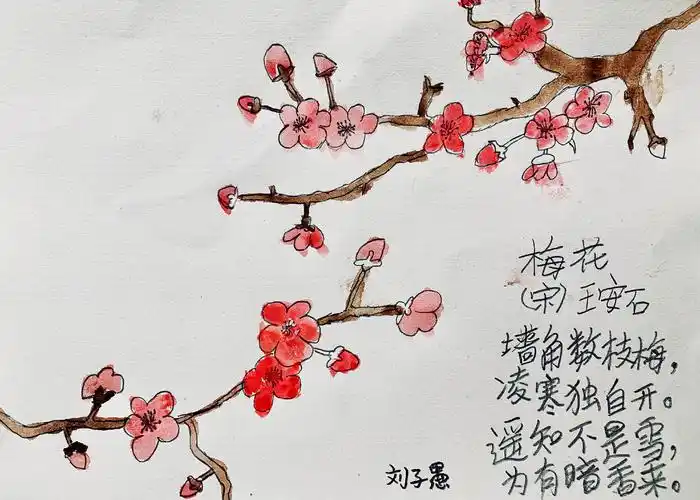 梅花
（宋）王安石
墙角数枝梅，
凌寒独自开。
遥知不是雪，
为有暗香来。
刘子愚